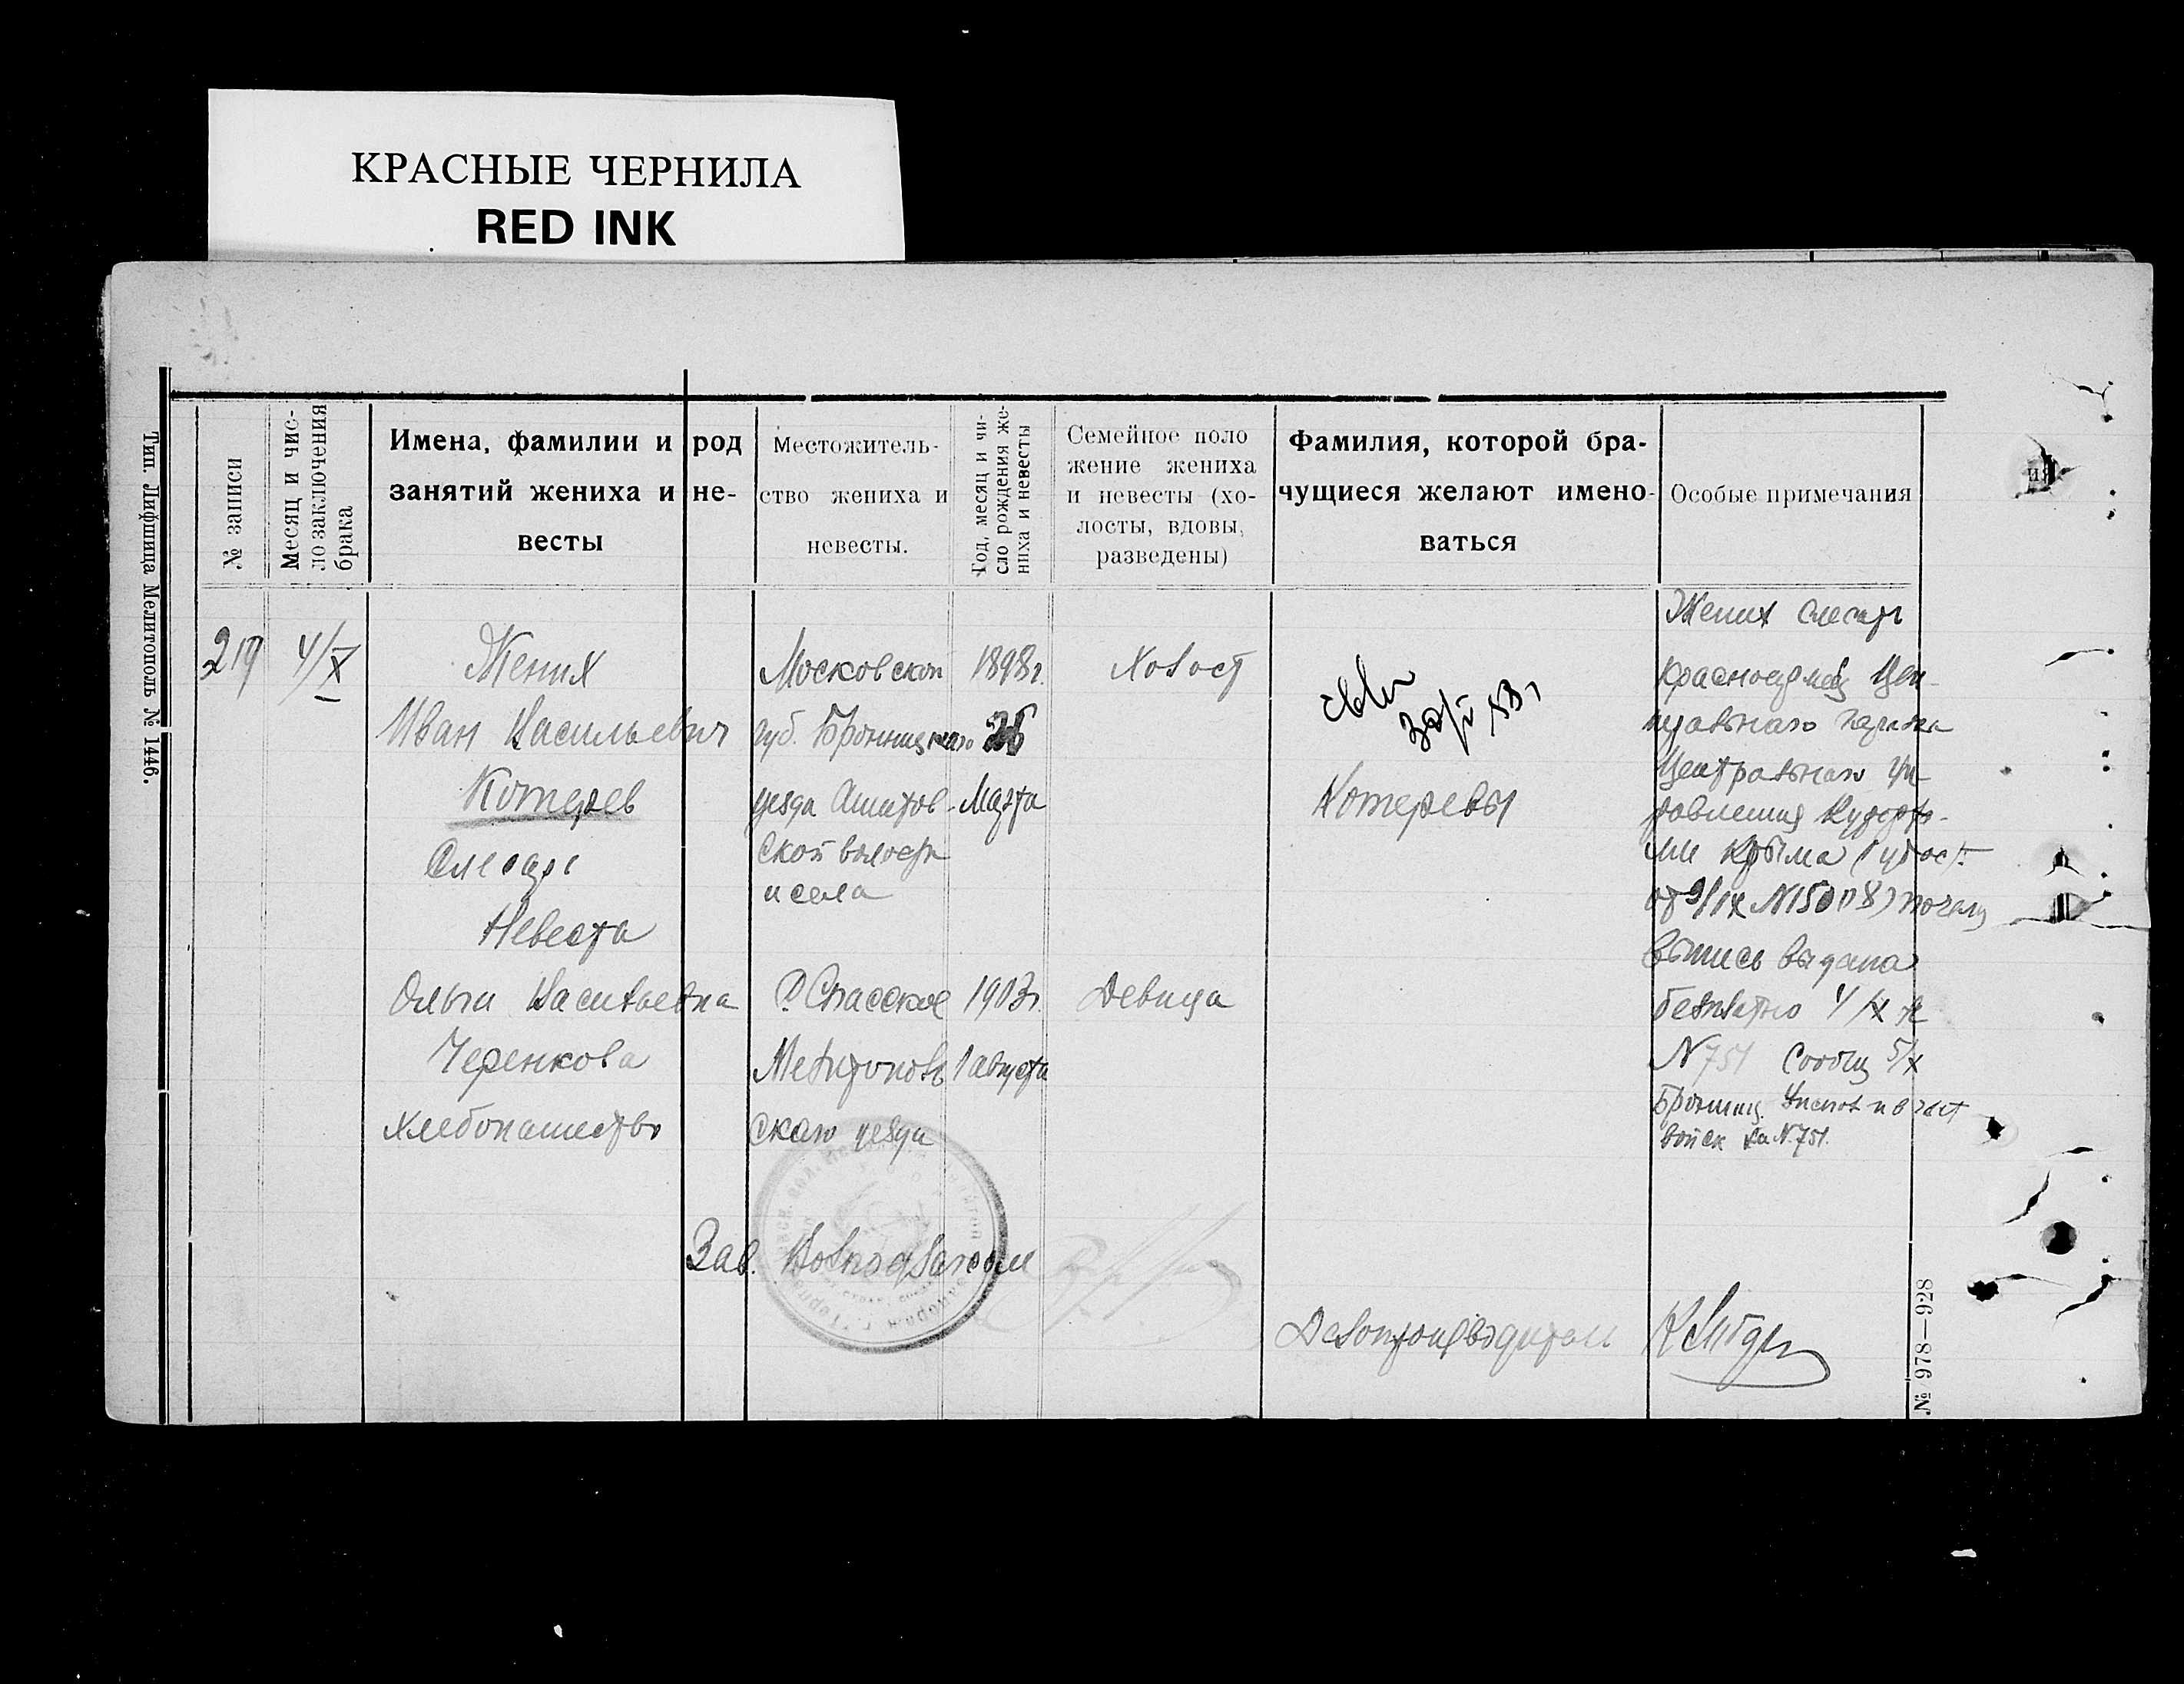 КРАСНЫЕ ЧЕРНИЛА
RED INK
Тип. Лифшица Мелитополь № 1446.
№ записи
Месяц и чис-
ло заключения
брака
Имена, фамилии и род
занятий жениха и не-
весты
Местожитель-
ство жениха и
невесты.
Год, месяц и чи-
сло рождения же-
ниха и невесты
Семейное поло
жение жениха
и невесты (хо-
лосты, вдовы,
разведены)
Фамилия, которой бра-
чущиеся желают имено-
ваться
Особые примечания
219
4/X
Жених
Иван Васильевич
Котерев
Слесарь
Невеста
Ольга Васильевна
Черенкова
хлебопашество
Московской
губ. Бронницкаго
уезда
ской волости
и села
С. Спасское
Мелитополь
скаго уезда
1898г.
26
Марта
1903г.
1 августа
Холост
Девица
Котеревы
Жених слесарь
Красноармеец Цен-
тральнаго
Центральнаго Уп-
равления Курорта-
ми Крыма
от 9/IX №15008) почему
выпись выдана
безплатно 4/X
N 751 Сообщ 5/X
Бронниц.
войск за N.751.
Зав.
Делопроизводитель
№ 978—928